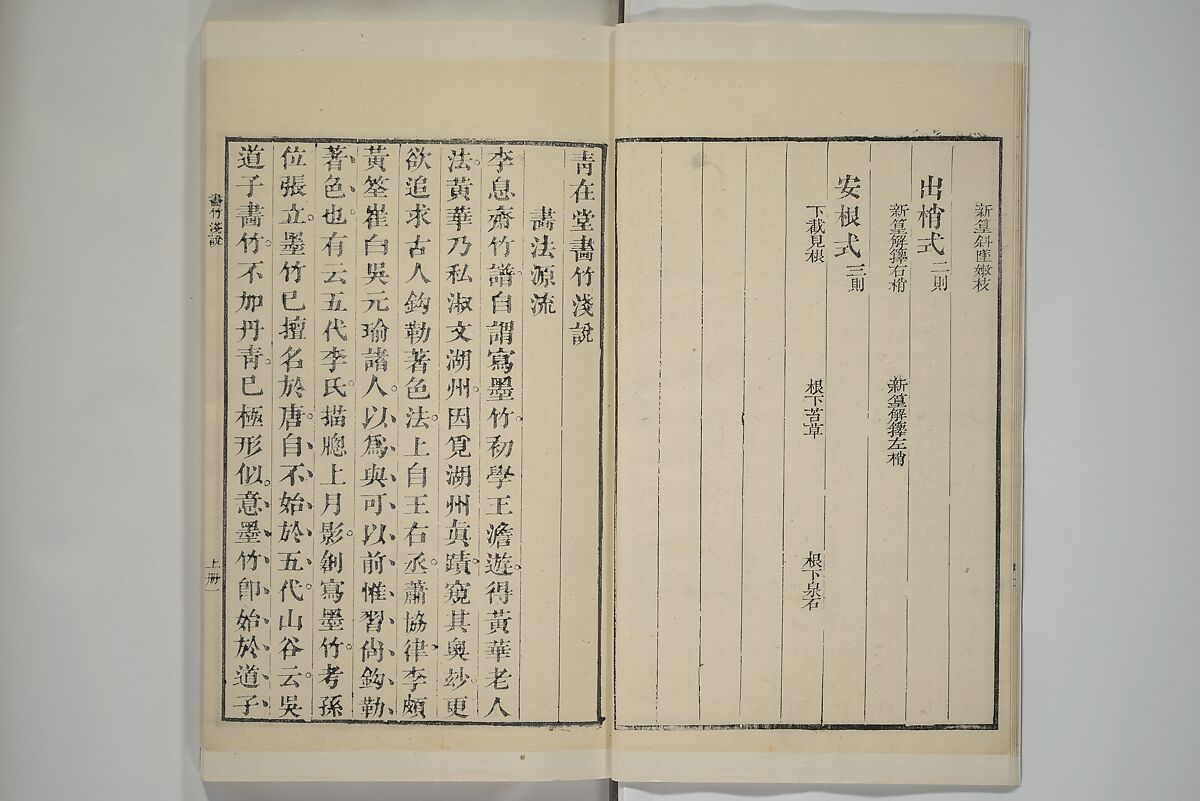 新篁斜墜嫩枝
出梢式 二則
新篁解籜右梢 新篁解籜左梢
安根式 三則
下截見根 根下苔草 根下泉石
青在堂畫竹淺說
畫法源流
李息齋竹譜自謂寫墨竹初學王澹遊得黃華老人
法黃華乃私淑文湖州因覓湖州眞蹟窺其奧妙更
欲追求古人鈎勒著色法上自王右丞蕭協律李頗
黃筌崔白吳元瑜諸人以爲與可以前惟習尙鈎勒
著色也有云五代李氏描牕上月影創寫墨竹考孫
位張立墨竹已擅名於唐自不始於五代山谷云吳
道子畫竹不加丹青已極形似意墨竹卽始於道子
畫竹淺說
上册一